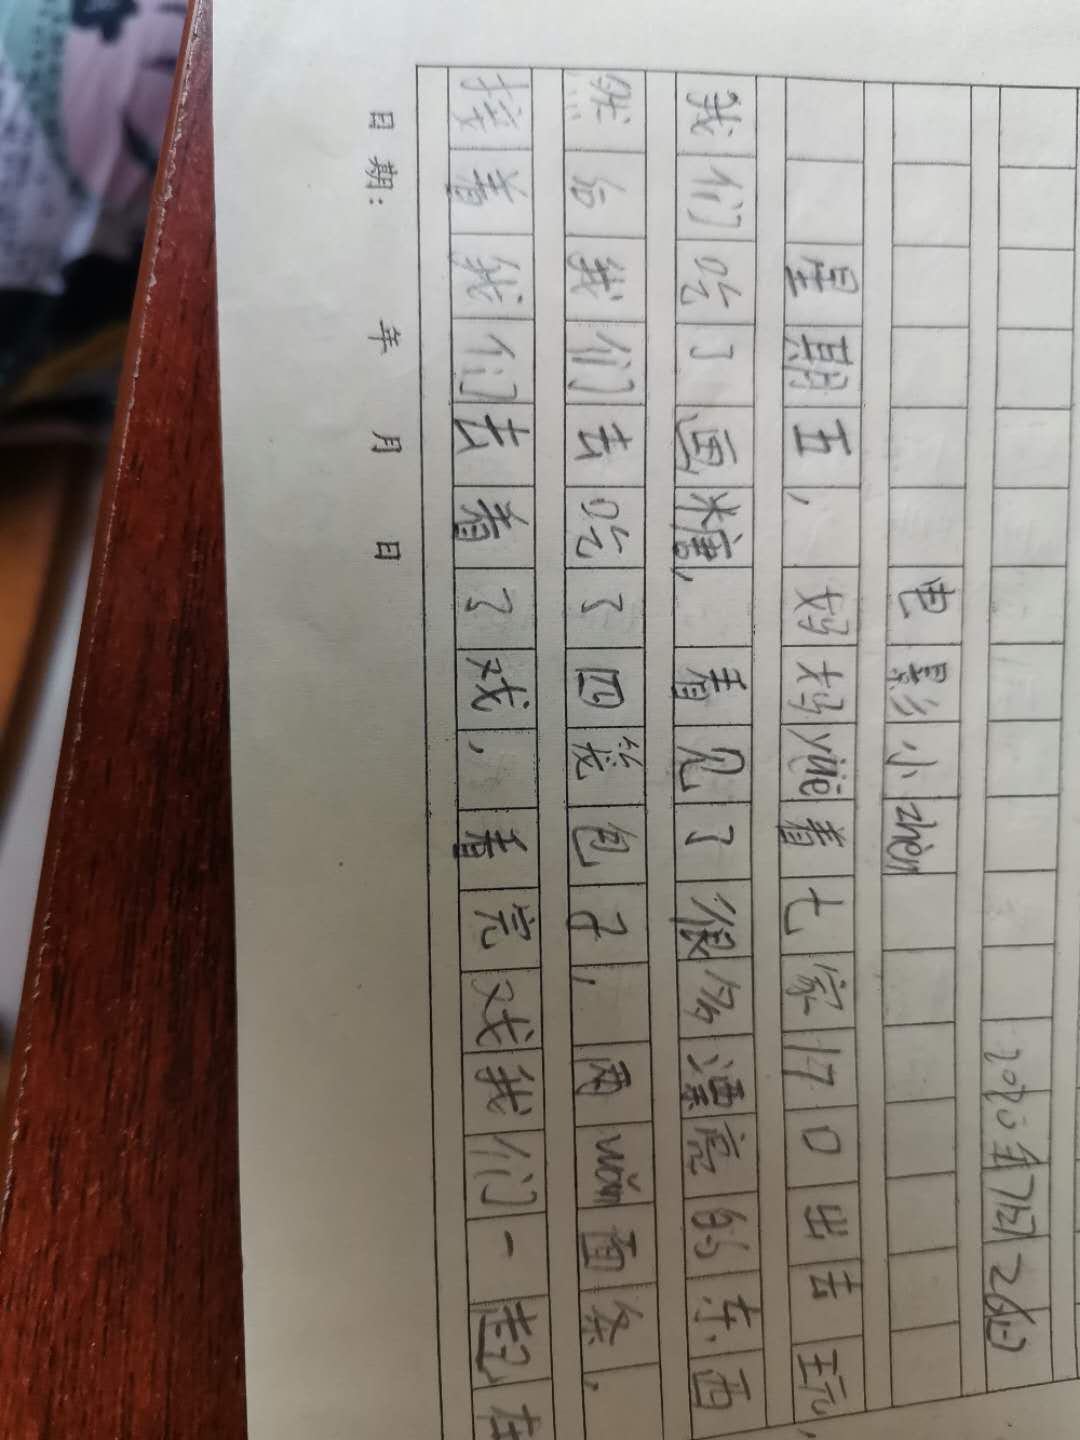 2020年7月26日
电影小zhèn
星期五，好妈yüē着七家17口出去玩，
我们吃了画糖，看见了很多漂亮的东西
然后我们去吃了四笼包子，两wǎn面条，
接着我们去看了戏，看完戏我们一起在
日期： 年 月 日